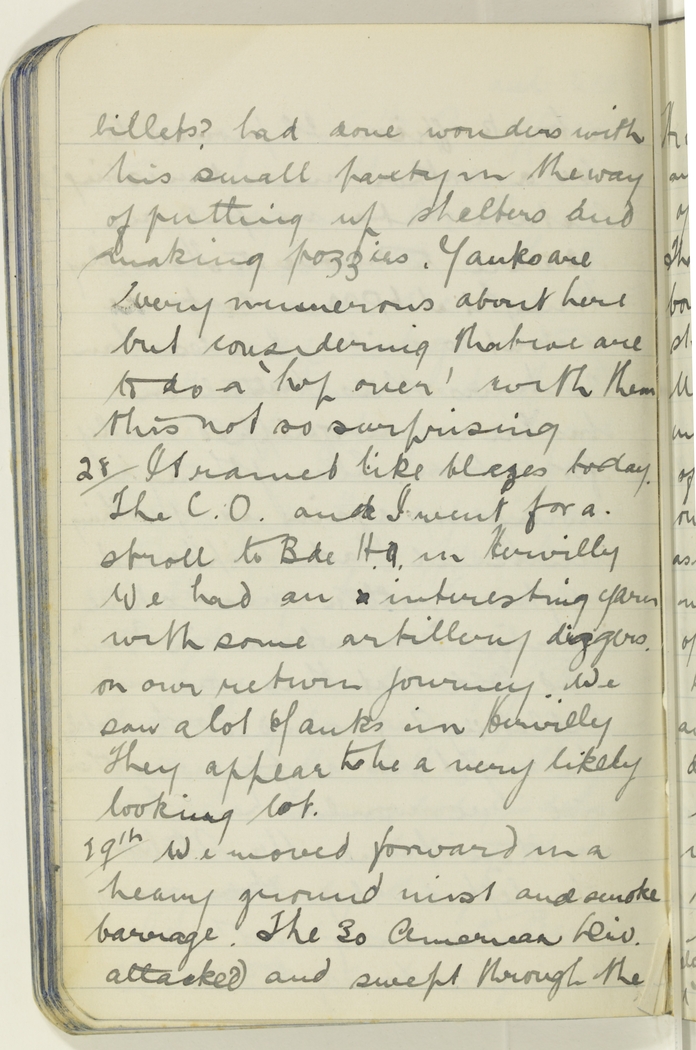 billets? had done wonders with
his small party in the way
of putting up shelters and
making pozzies. Yanks are
very numerous about here
but considering that we are
to do a 'hop over' with them
this not so surprising
28/ It rained like blazes today.
The C.O. and I went for a.
stroll to Bde H.Q. in Hervilly
We had an interesting yarn
with some artillery diggers.
on our return journey. We
saw a lot Yanks in Hervilly
They appear to be a very likely
looking lot.
29th We moved forward in a
heavy ground mist and smoke
barrage. The 30 American Div.
attacked and swept through the